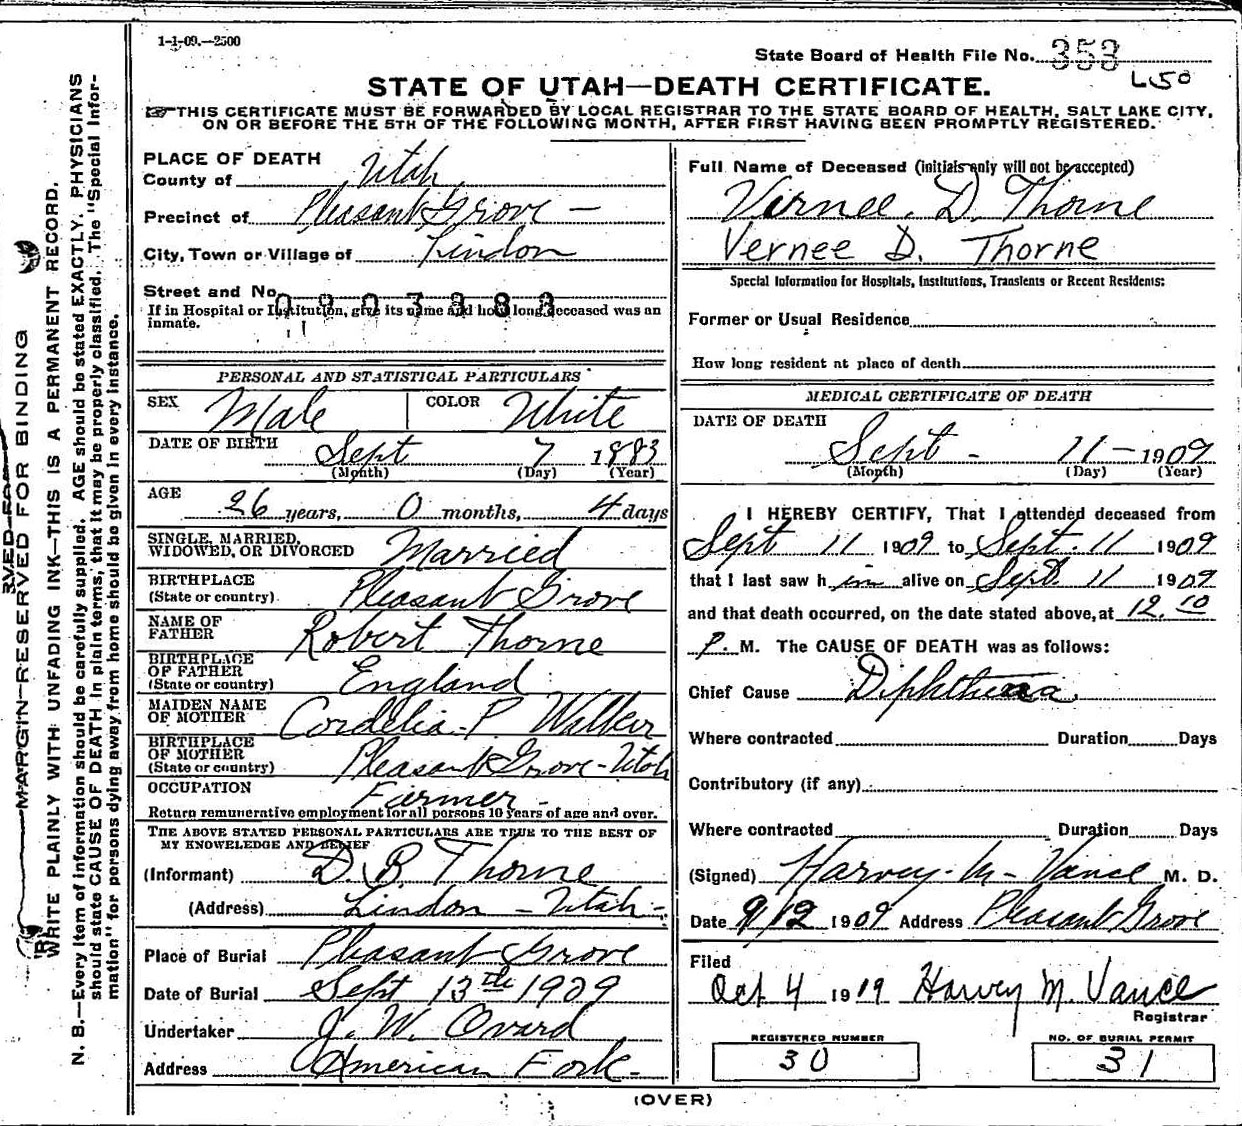 1-1-09.—2500
State Board of Health File No. 353
L50
STATE OF UTAH—DEATH CERTIFICATE.
THIS CERTIFICATE MUST BE FORWARDED BY LOCAL REGISTRAR TO THE STATE BOARD OF HEALTH, SALT LAKE CITY,
ON OR BEFORE THE 5TH OF THE FOLLOWING MONTH, AFTER FIRST HAVING BEEN PROMPTLY REGISTERED.
PLACE OF DEATH
County of Utah
Precinct of Pleasant Grove —
City, Town or Village of Lindon
Street and No.
0903383
If in Hospital or Institution, give its name and how long deceased was an
inmate.
PERSONAL AND STATISTICAL PARTICULARS
SEX Male COLOR White
DATE OF BIRTH Sept 7 1883
(Month) (Day) (Year)
AGE
26 years, 0 months, 4 days
SINGLE, MARRIED,
WIDOWED, OR DIVORCED Married
BIRTHPLACE
(State or country) Pleasant Grove
NAME OF
FATHER Robert Thorne
BIRTHPLACE
OF FATHER
(State or country) England
MAIDEN NAME
OF MOTHER Cordelia P. Walker
BIRTHPLACE
OF MOTHER
(State or country) Pleasant Grove - Utah
OCCUPATION Farmer -
Return remunerative employment for all persons 10 years of age and over.
THE ABOVE STATED PERSONAL PARTICULARS ARE TRUE TO THE BEST OF
MY KNOWLEDGE AND BELIEF
(Informant) D. B. Thorne
(Address) Lindon - Utah -
Place of Burial Pleasant Grove
Date of Burial Sept 13th 1909
Undertaker J. W. Ovard
Address American Fork -
Full Name of Deceased (initials only will not be accepted)
Virnee. D. Thorne
Vernee D. Thorne
Special Information for Hospitals, Institutions, Transients or Recent Residents:
Former or Usual Residence
How long resident at place of death
MEDICAL CERTIFICATE OF DEATH
DATE OF DEATH
Sept - 11 - 1909
(Month) (Day) (Year)
I HEREBY CERTIFY, That I attended deceased from
Sept 11 1909 to Sept. 11 1909
that I last saw him alive on Sept. 11 1909
and that death occurred, on the date stated above, at 12.10
P. M. The CAUSE OF DEATH was as follows:
Chief Cause Diphtheria
Where contracted Duration Days
Contributory (if any)
Where contracted Duration Days
(Signed) Harvey M. Vance M. D.
Date 9/12 1909 Address Pleasant Grove
Filed
Oct 4 1909 Harvey M. Vance
Registrar
REGISTERED NUMBER
30
NO. OF BURIAL PERMIT
31
(OVER)
MARGIN—RESERVED FOR BINDING
WRITE PLAINLY WITH UNFADING INK—THIS IS A PERMANENT RECORD.
N. B.—Every item of information should be carefully supplied. AGE should be stated EXACTLY. PHYSICIANS
should state CAUSE OF DEATH in plain terms, that it may be properly classified. The "Special Infor-
mation" for persons dying away from home should be given in every instance.